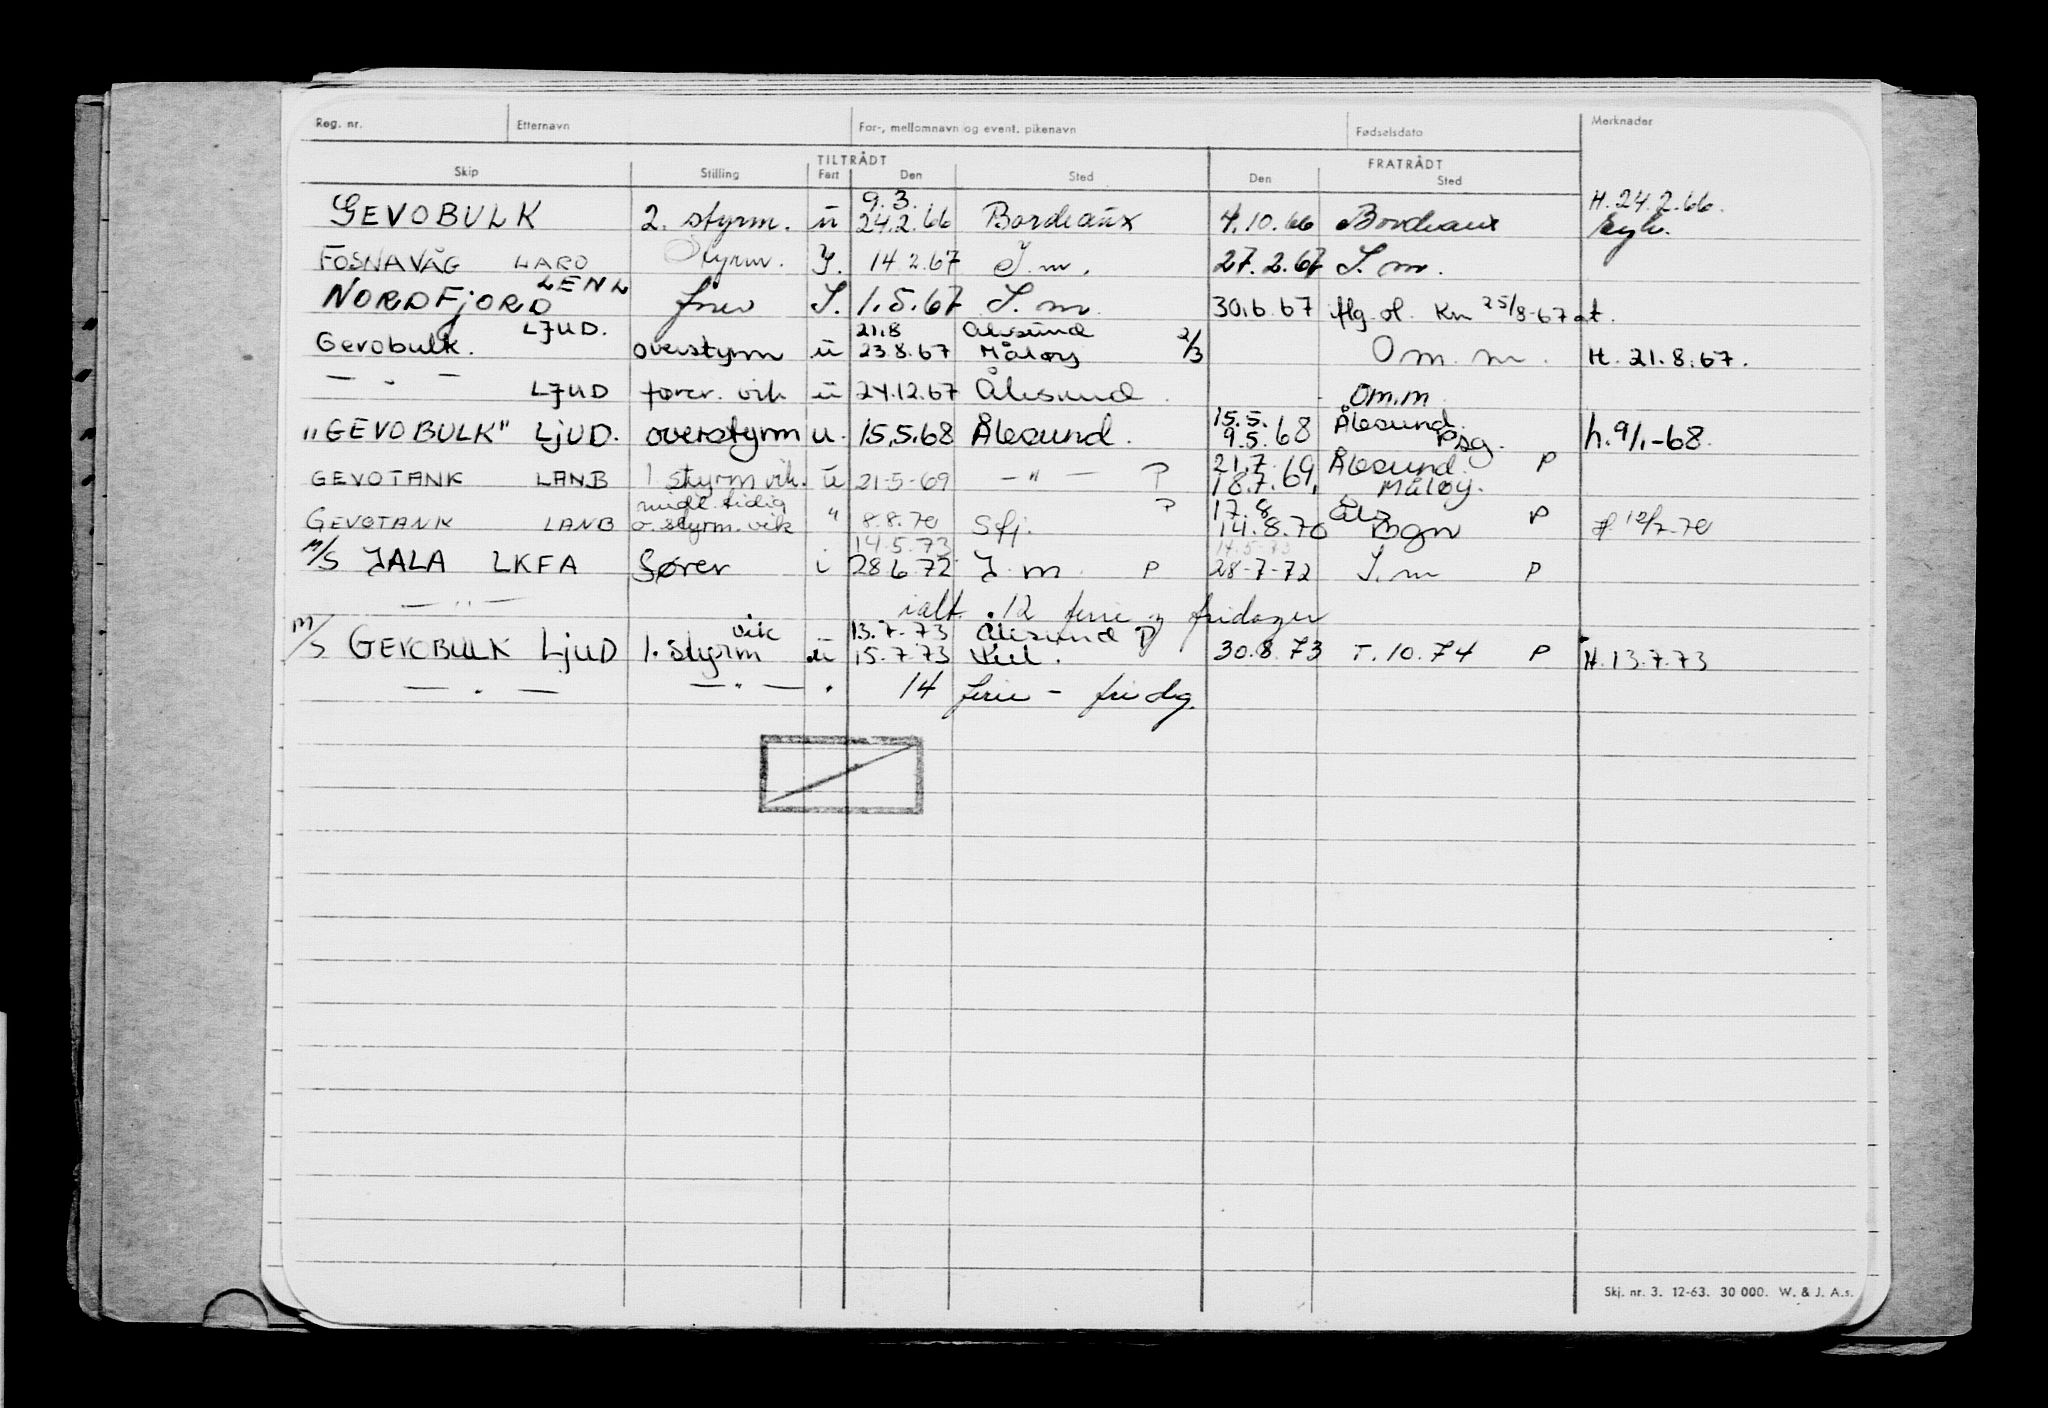 Reg. nr. Etternavn For-, mellomnavn og event. pikenavn Fødselsdato Merknader
TILTRÅDT FRATRÅDT
Skip Stilling Fart Den Sted Den Sted
9.3. H. 24.2.66.
GEVOBULK 2. styrm. u 24.2.66 Bordeaux 4.10.66 Bordeaux
FOSNAVÅG LARO Styrm. I. 14.2.67 I.m. 27.2.67 I.m.
LENL
NORDFJORD I. 1.5.67 I.m. 30.6.67 25/8-67
LJUD. 21.8 Ålesund
Gevobulk. overstyrm u 23.8.67 Måløy 2/3 Om. m. H. 21.8.67.
— " — LJUD fører. vik u 24.12.67 Ålesund. Om.m.
15.5. Ålesund.
"GEVOBULK" LJUD. overstyrm u. 15.5.68 Ålesund. 9.5.68 Psg. h. 9/1-68.
21.7.69 Ålesund. P
GEVOTANK LANB 1 styrm vik. u 21-5-69 — " — P 18.7.69, Måløy.
midl. tidig P 17.8 Åls P
GEVOTANK LANB o. styrm. vik " 8.8.70 Sfj. 14.8.70 Bgn H 12/7-70
14.5.73 14.5-73
M/S JALA LKFA fører i 28.6.72 I.m. P 28-7-72 I.m P
— " — ialt. 12 ferie og fridager
vik 13.7.73 Ålesund P
M/S GEVOBULK LJUD 1. styrm u 15.7.73 Kiel. 30.8.73 T. 10.74 P H. 13.7.73
— " — — " — " 14 ferie - fridg.
Skj. nr. 3. 12-63. 30 000. W. & J. A.s.